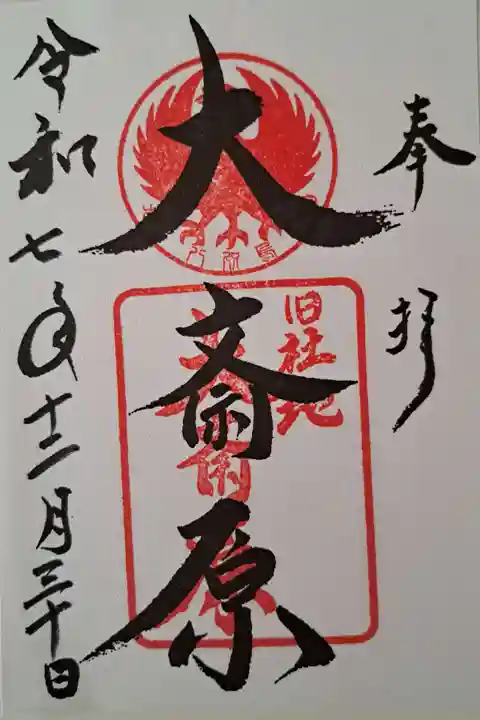 奉拝
大斎原
旧社地
令和七年十二月三十日